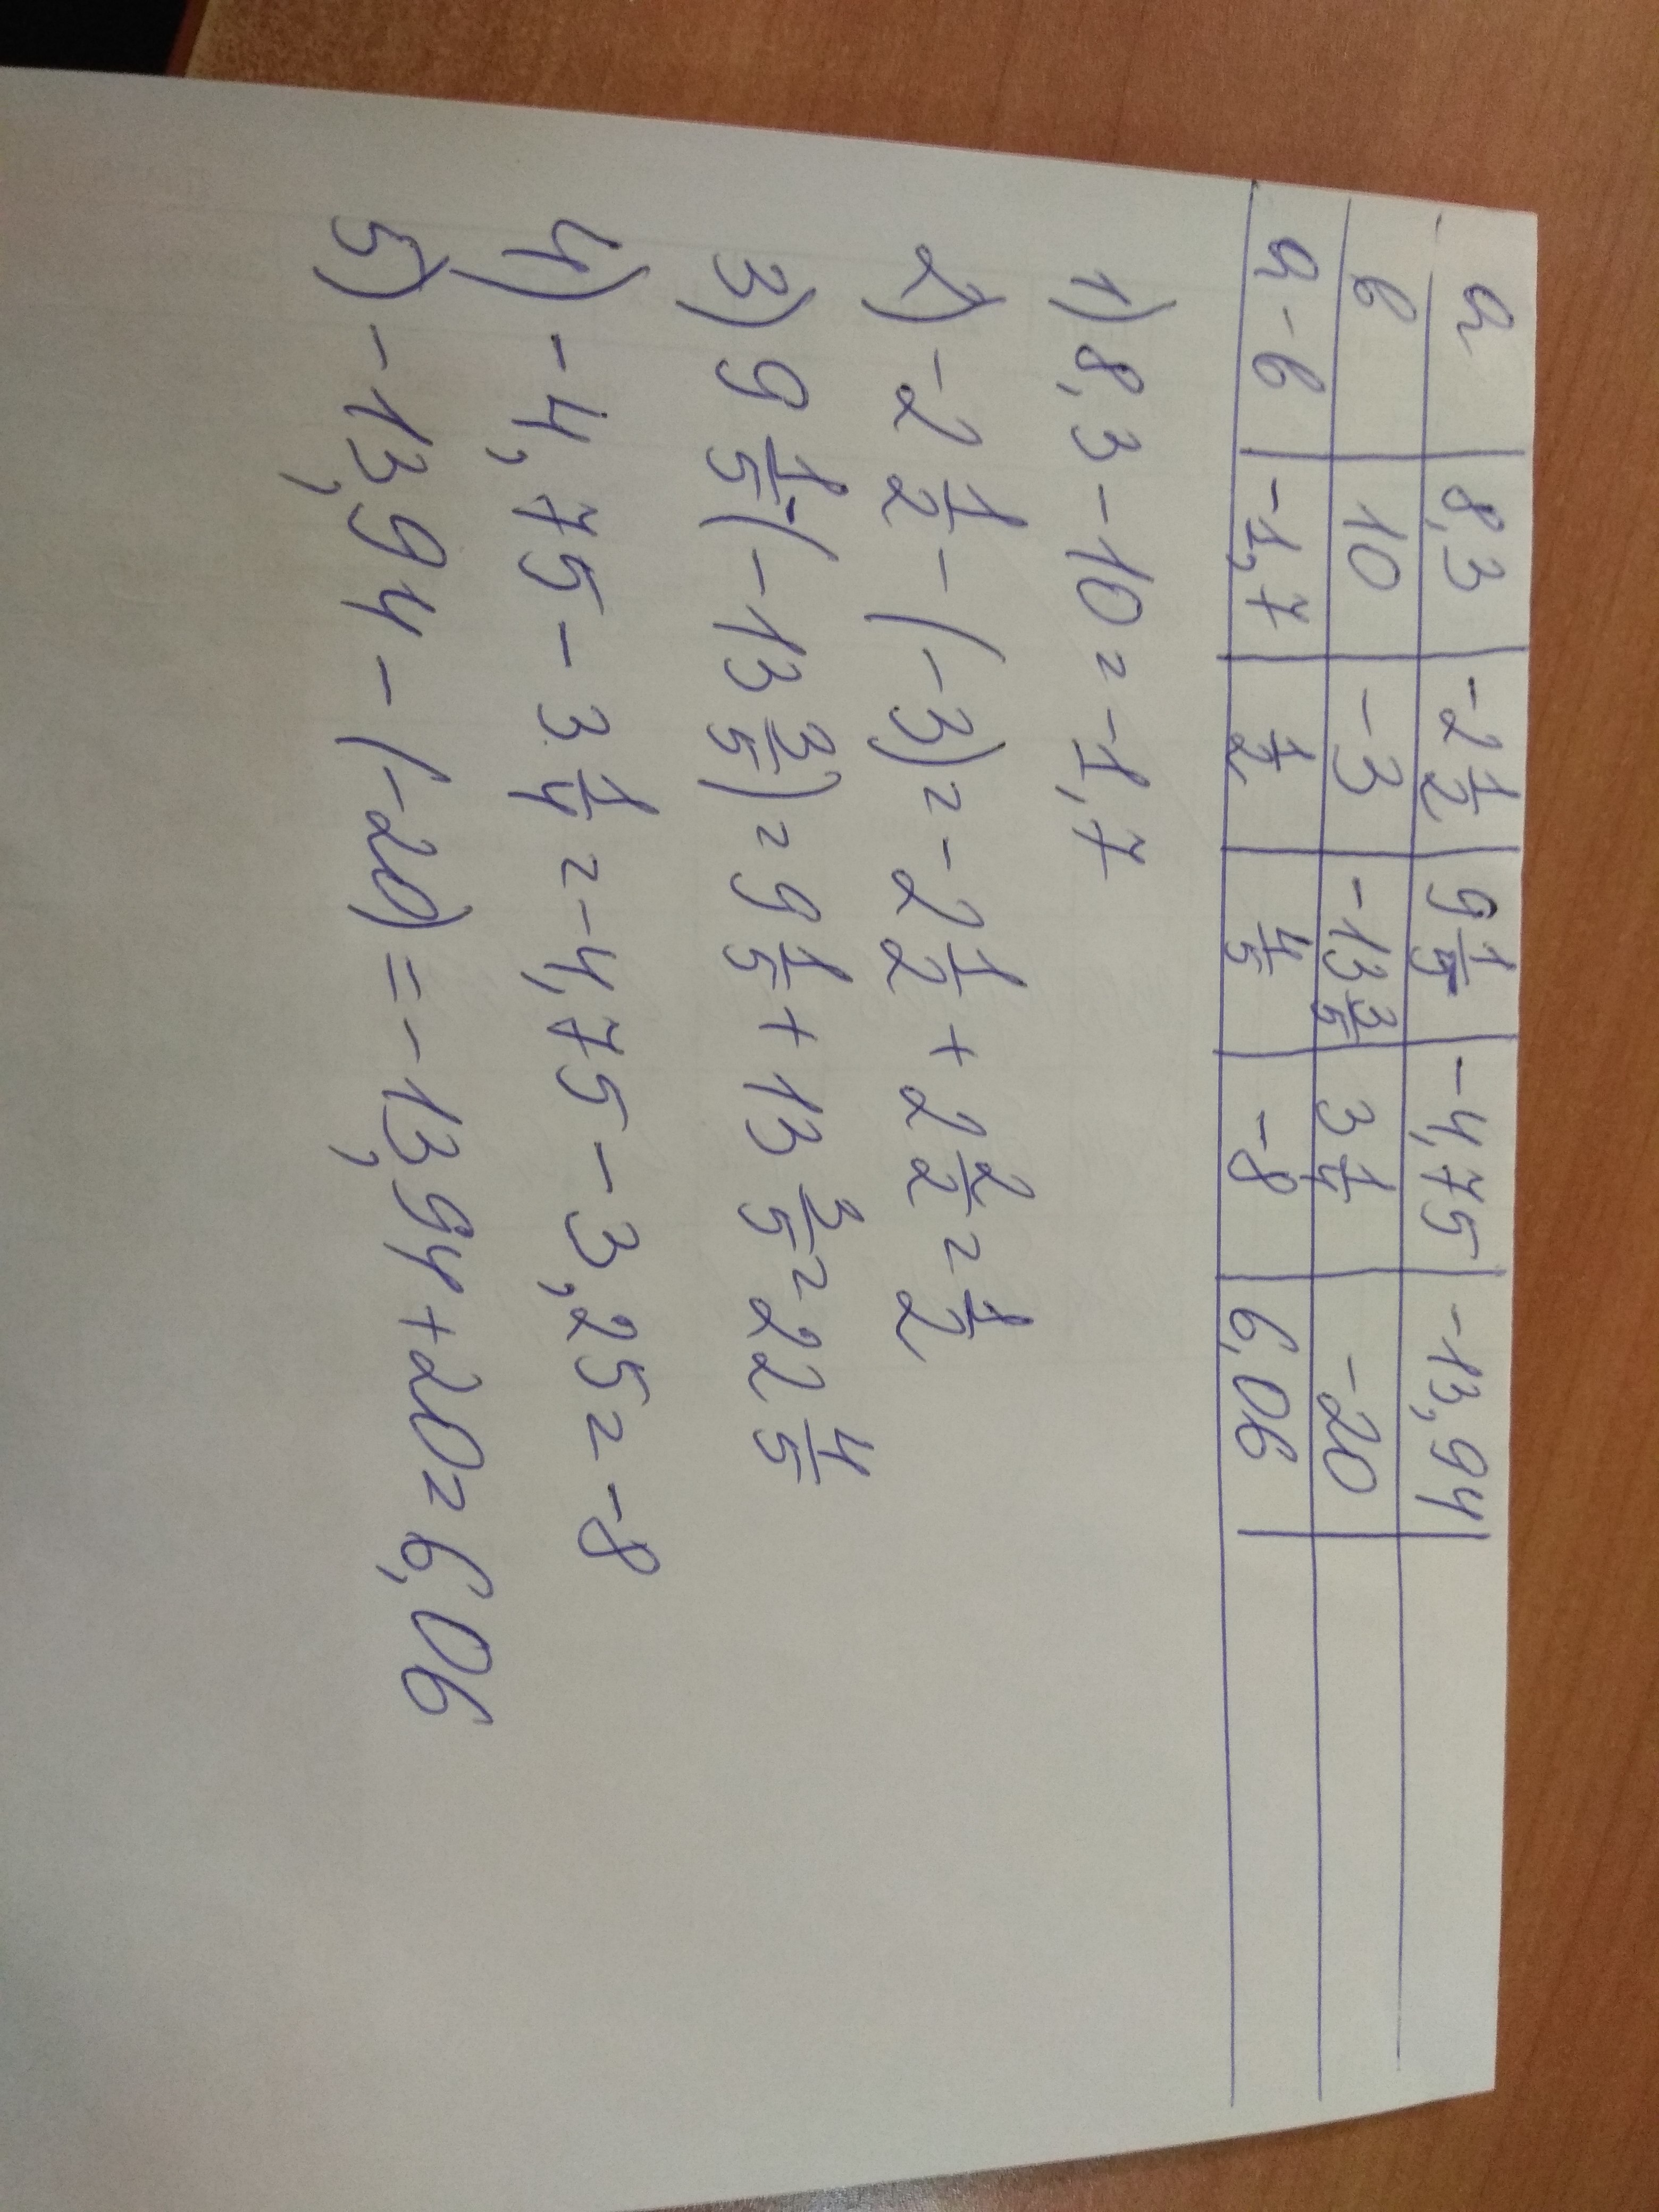 a 8,3 -2 1/2 9 1/5 -4,75 -13,94
в 10 -3 -13 3/5 3 1/4 -20
a-в -1,7 1/2 4/5 -8 6,06
1) 8,3-10=-1,7
2) -2 1/2 -(-3)=-2 1/2 + 2 2/2 = 1/2
3) 9 1/5 -(-13 3/5)=9 1/5 + 13 3/5 = 22 4/5
4) -4,75-3 1/4 =-4,75-3,25=-8
5) -13,94-(-20)=-13,94+20=6,06